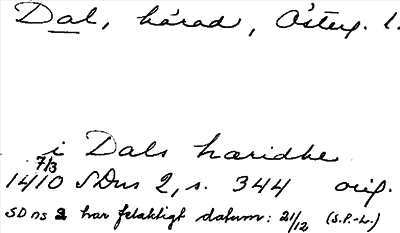 Dal, härad, Österg. l.
i Dals hæridhe
7/3
1410 SDns 2, s. 344 orig.
SDns 2 har felaktigt datum: 21/12 (S.P.-L.)